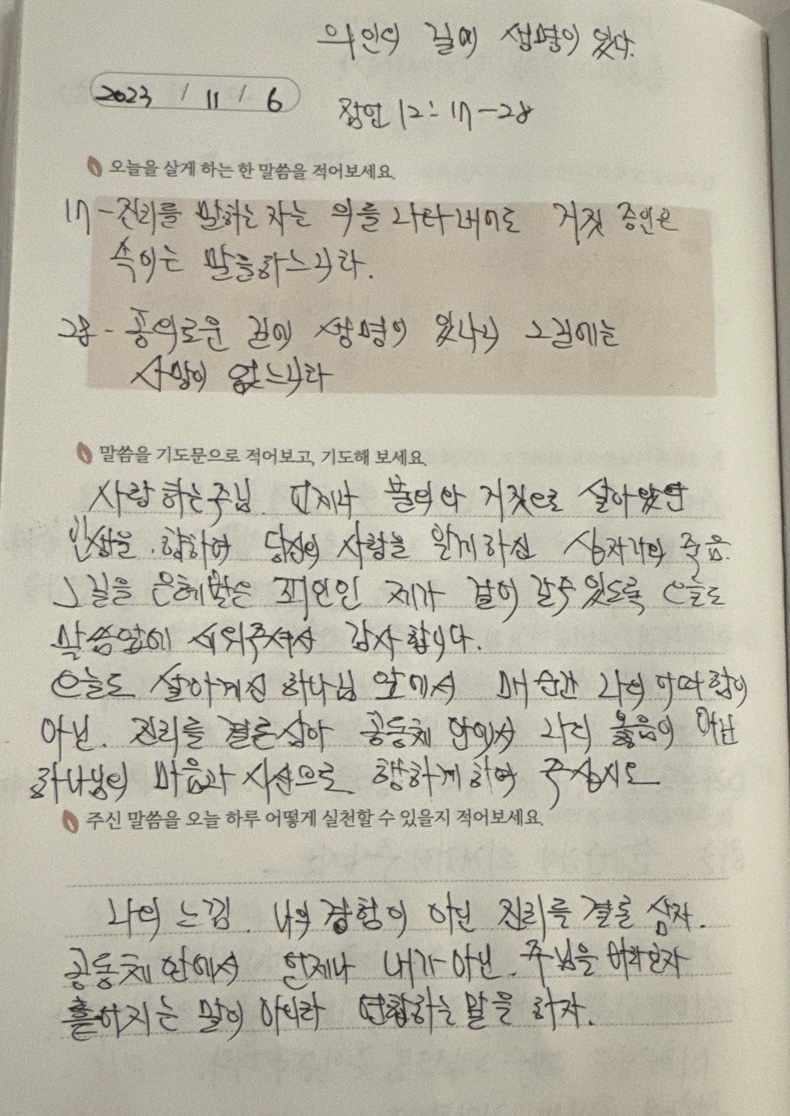 의인의 길에 생명이 있다.
2023 / 11 / 6
잠언 12:17-28
오늘을 살게 하는 한 말씀을 적어보세요.
17-진리를 말하는 자는 의를 나타내어도 거짓 증인은
속이는 말을하느니라.
28-공의로운 길에 생명이 있나니 그길에는
사망이 없느니라
말씀을 기도문으로 적어보고, 기도해 보세요.
사랑하는주님. 언제나 불의와 거짓으로 살아왔던
인생을. 향하여 당신의 사랑을 알게하신 십자가의 죽음.
그 길을 은혜받은 죄인인 제가 걸어 갈수 있도록 오늘도
말씀앞에 세워주셔서 감사합니다.
오늘도 살아계신 하나님 앞에서 매 순간 나의 어떠함이
아닌. 진리를 결론삼아 공동체 안에서 나의 옳음이 아닌
하나님의 마음과 시선으로 행하게하여 주십시오
주신 말씀을 오늘 하루 어떻게 실천할 수 있을지 적어보세요.
나의 느낌. 나의 경험이 아닌 진리를 결론 삼자.
공동체 안에서 언제나 내가아닌. 주님을 바라보자
흩어지는 말이 아니라 연합하는말을 하자.